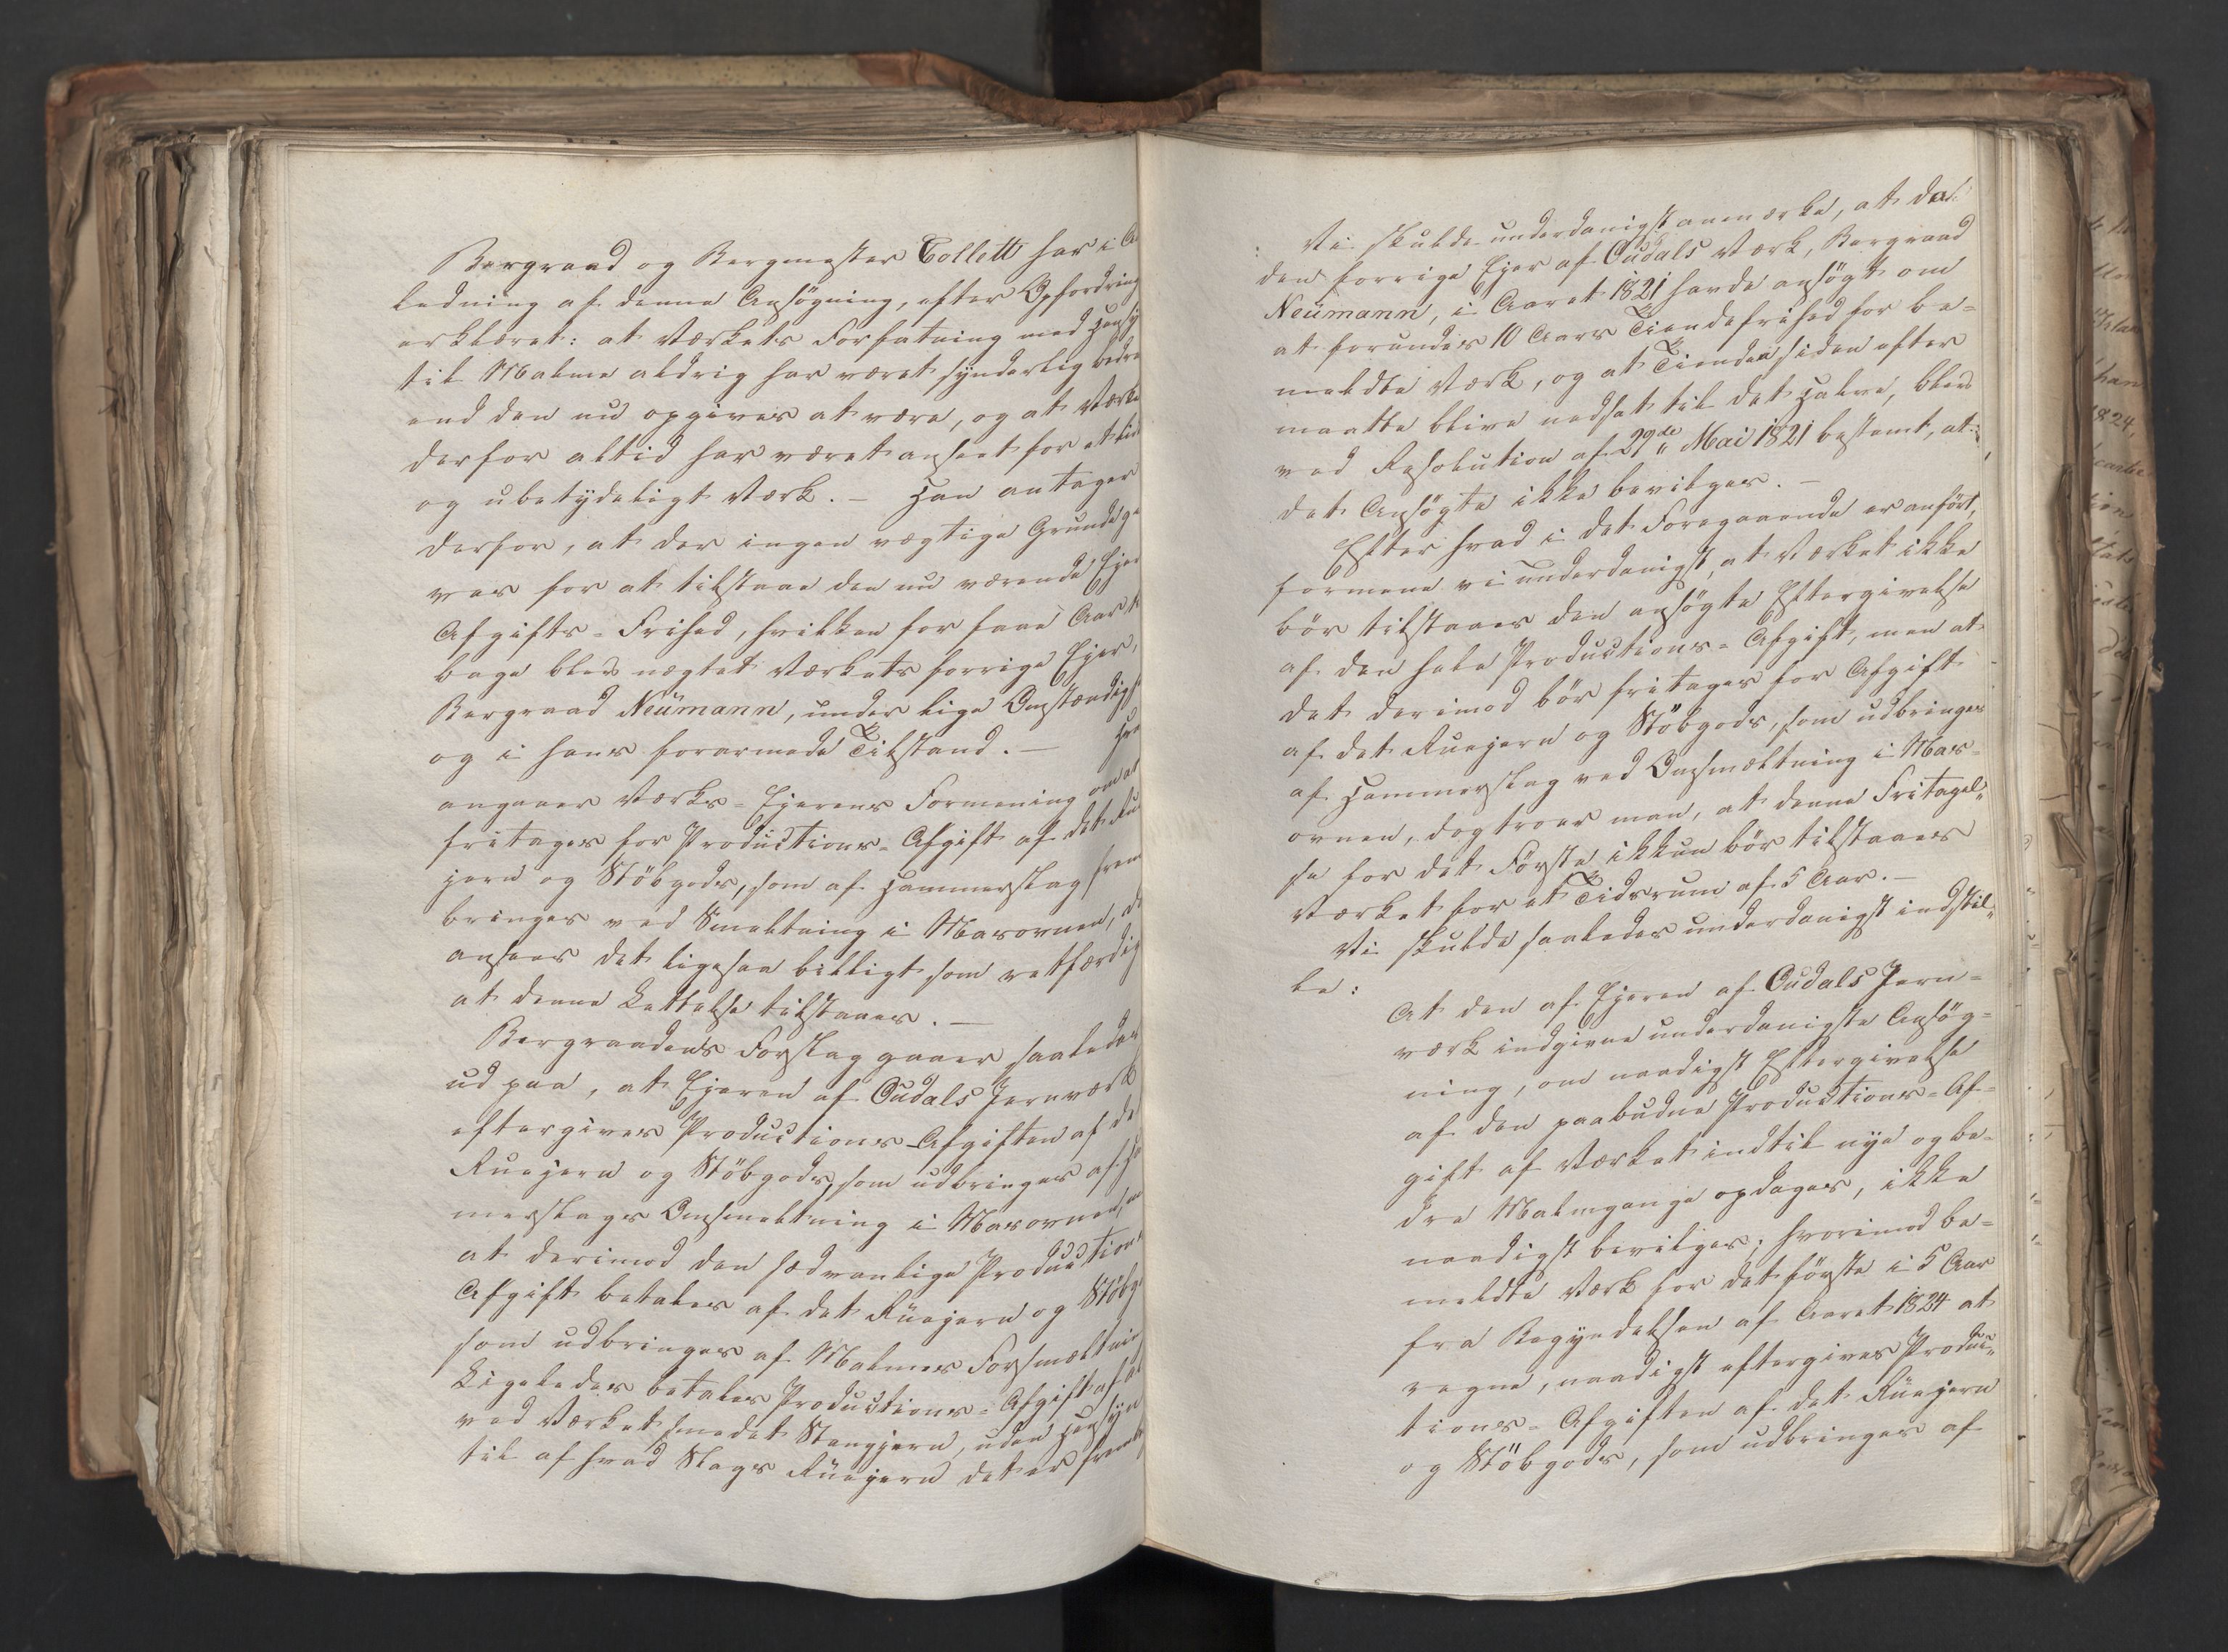 Bergraad og Bergmester Collett har i A
ledning af denne Ansögning, efter Opfordring
erklæret: at Værkets Forfatning med Hensy
til Malme aldrig har været synderlig bedre
end den nu opgives at være, og at Værke
derfor altid har været anseet for et lid
og ubetydeligt Værk. – Han antager
derfor, at der ingen vægtige Grunde ga
ves for at tilstaae den nu værende Ejer
Afgifts-Frihed, hvilken for faae Aar ti
bage blev nægtet Værkets forrige Ejer,
Bergraad Neumann, under lige Omstændigh
og i hans forarmede Tilstand. – Hva
angaaer Værks-Ejerens Formening om at
fritages for Productions-Afgift af det Ru
jern og Stöbgods, som af Hammerslag frem
bringes ved Smeltning i Masovnen, da
ansees det ligesaa billigt som retfærdig
at denne Lettelse tilstaaes. –
Bergraadens Forslag gaaer saaledes
ud paa, at Ejeren af Oudals Jernværk
eftergives Productions-Afgiften af de
Ruejern og Stöbgods, som udbringes af Ha
merslags Omsmeltning i Masovnen, men
at derimod den sædvanlige Productions
Afgift betales af det Ruejern og Stöbg
som udbringes af Malmes Forsmeltning
Ligeledes betales Productions-Afgift af al
ved Værket smedet Stangjern, uden Hensyn
til af hvad Slags Ruejern det er fremb
Vi skulde underdanigst anmærke, at da
den forrige Ejer af Oudals Værk, Bergraad
Neumann, i Aaret 1821 havde ansögt om
at forundes 10 Aars Tiendefrihed for be-
meldte Værk, og at Tienden siden efter
maatte blive nedsat til det Halve, blev
ved Resolution af 29de Mai 1821 bestemt, at:
det Ansögte ikke bevilges. –
Efter hvad i det Foregaaende er anfört,
formene vi underdanigst, at Værket ikke
bör tilstaaes den ansögte Eftergivelse
af den hele Productions-Afgift, men at
det derimod bör fritages for Afgift
af det Ruejern og Stöbgods, som udbringes
af Hammerslag ved Omsmeltning i Mas-
ovnen, dog troer man, at denne Fritagel-
se for det Förste ikkun bör tilstaaes
Værket for et Tidsrum af 5 Aar. –
Vi skulde saaledes underdanigst indstil-
le:
At den af Ejeren af Oudals Jern-
værk indgivne underdanigste Ansög-
ning, om naadigst Eftergivelse
af den paabudne Productions-Af-
gift af Værket indtil nye og be-
dre Malmgange opdages, ikke
naadigst bevilges; hvorimod be-
meldte Værk for det förste i 5 Aar
fra Begyndelsen af Aaret 1824 at
regne, naadigst eftergives Produc-
tions-Afgiften af det Ruejern
og Stöbgods, som udbringes af